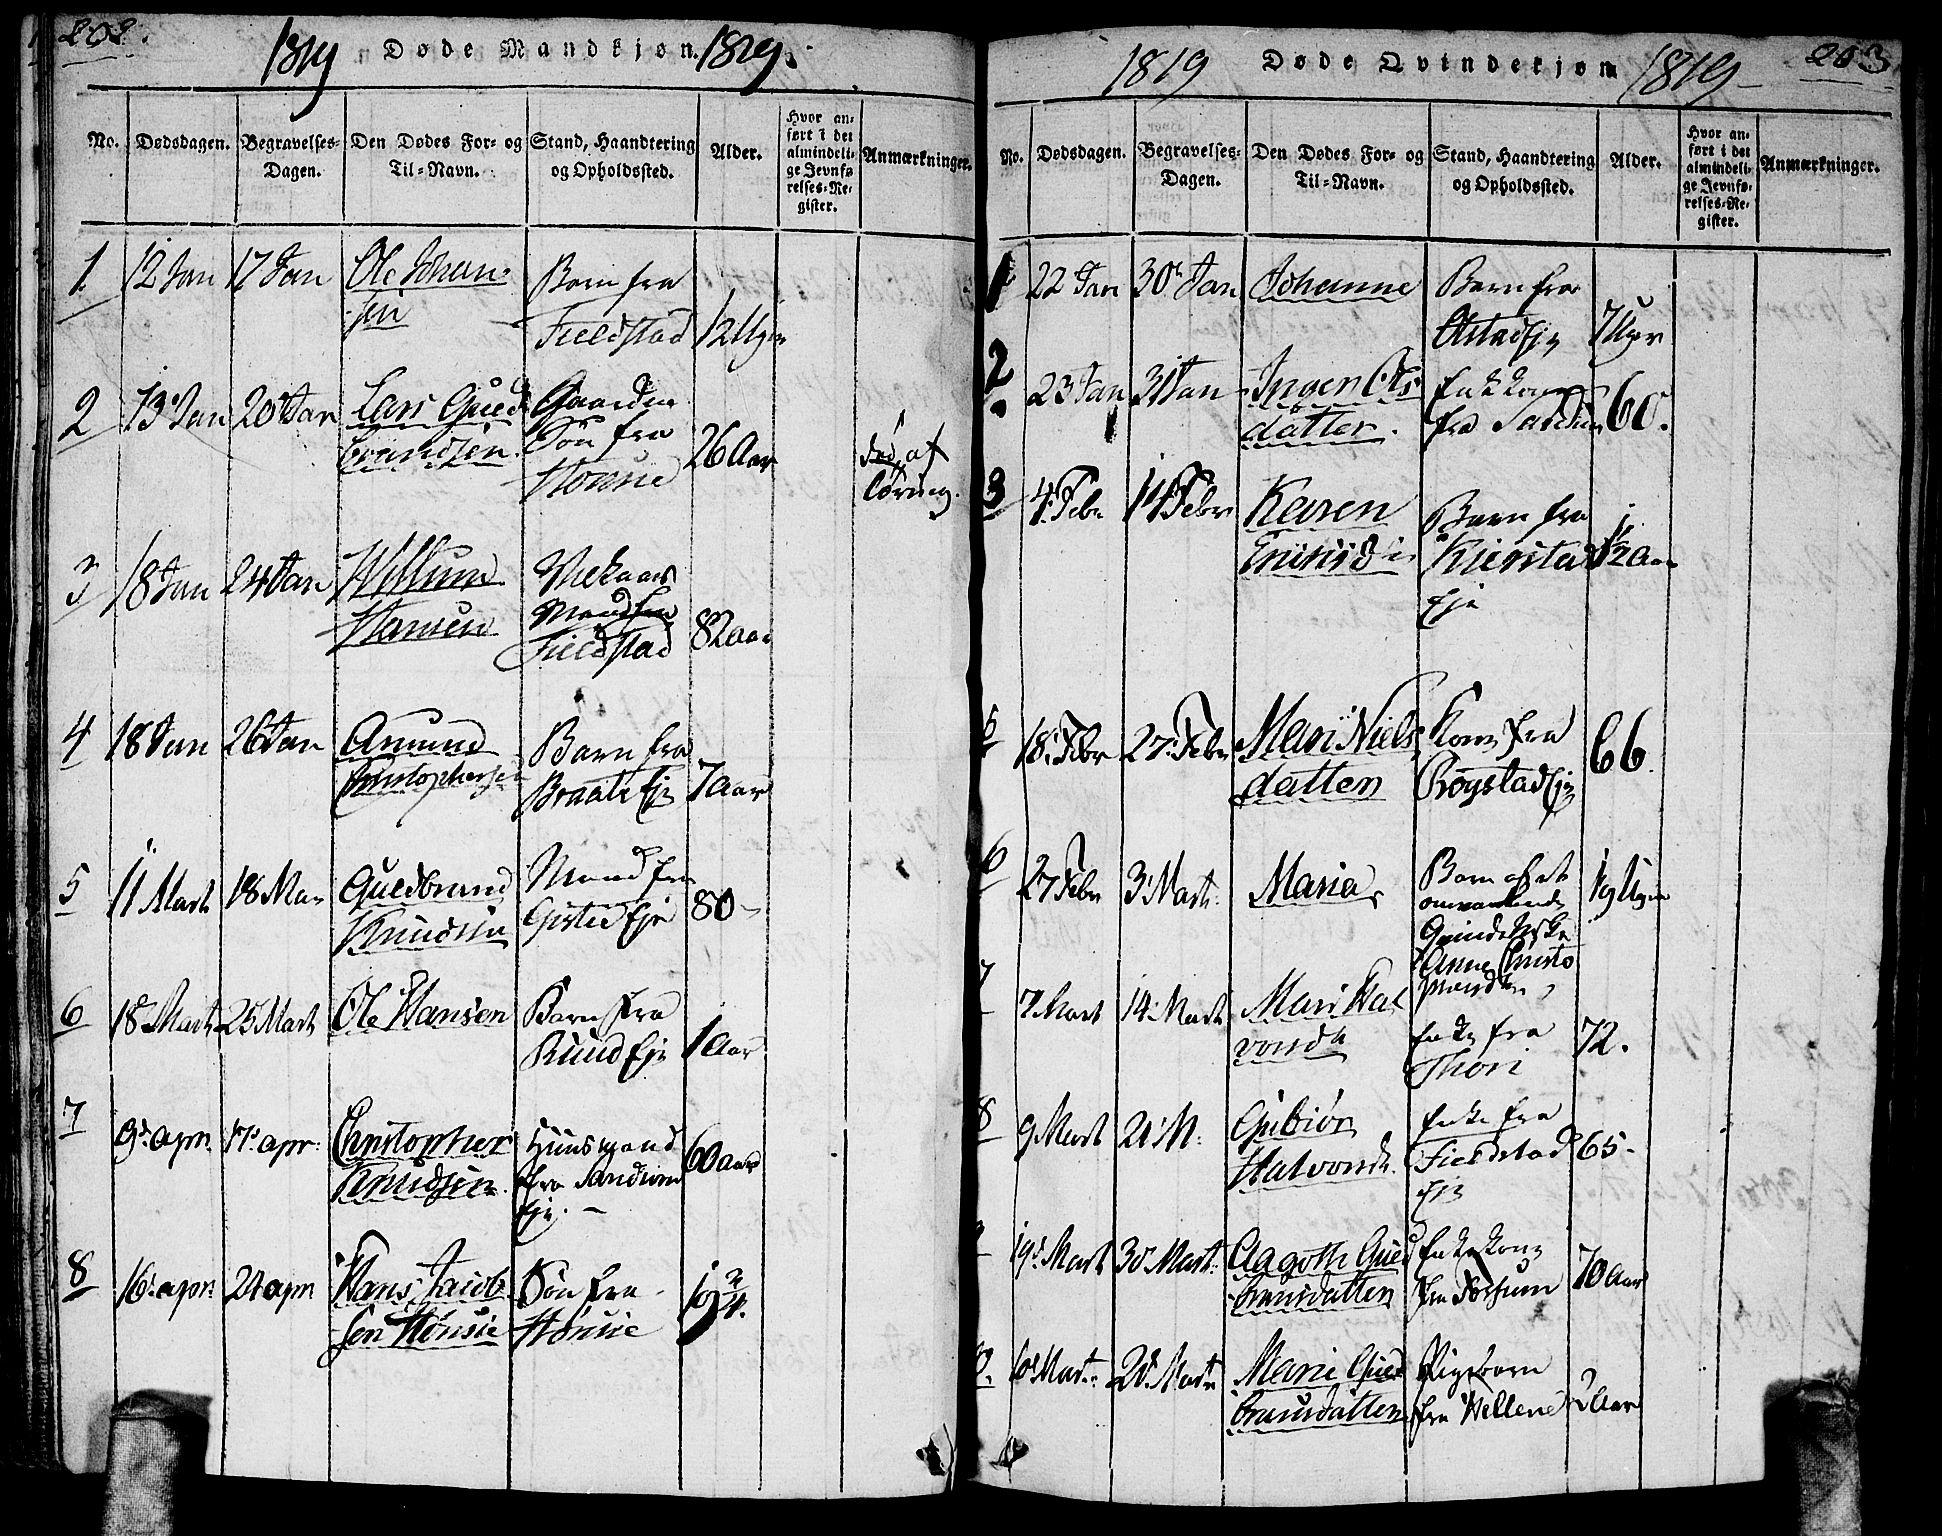 202.
1819 Døde Mandkjøn. 1819.
No. Dødsdagen. Begravelses-Dagen. Den Dødes For- og Til-Navn. Stand, Haandtering og Opholdssted. Alder. Hvor anført i det almindelige Jevnførelses-Register. Anmærkninger.
1 12 Jan 17 Jan Ole Johan-
sen
Barn fra
Fieldstad 12 Uger
2 13 Jan 20 Jan Lars Gued
brandsen
Gaardm
Søn fra
Hønsie 26 Aar
død af
3 18 Jan 24 Jan Willum
Hansen
Fieldstad 82 aar
4 18 Jan 26 Jan Amund
Christophersen
Barn fra
Braate Eje 7 Aar
5 11 Mart 18 Mar Guldbrand
Knudsen
Mand fra
Eje 80
6 18 Mart 25 Mart Ole Hansen
Barn fra
Ruud Eje 1 Aar
7 9 apr. 17 apr. Christopher
Knudsen
Huusmand
fra Sandum
Eje. 60 aar
8 16 apr. 24 apr Hans Jacob
sen Hønsie
Søn fra
Hønsie 19 3/4.
203
1819 Døde Qvindekjøn 1819
No. Dødsdagen. Begravelses-Dagen. Den Dødes For- og Til-Navn. Stand, Haandtering og Opholdssted. Alder. Hvor anført i det almindelige Jevnførelses-Register. Anmærkninger.
1 22 Jan 30 Jan Johanne
Barn fra
7 Uger
2 23 Jan 31 Jan Ingen Ols
datter.
Enkekone
fra 60.
3 4 Febr 14 Febr Karen
Barn fra
Kierstad
Eje 1/2 Aar
5 18 Febr 27 Febr Mari Niels
datter
Kone fra
Røgstad Eje 66
6 27 Febr 3 Mart. Maria
Barn af et
omvankende
Qvindemske
Anne Christo
phersdtr 19 Uger
7 7 Mart 14 Mart Mari Hal
vorsdtr
Enke fra
Thori 72.
8 9 Mart 21 M. Gubiør
Halvorsdtr.
Enke fra
Fieldstad
Eje 65
9 19 Mart 30 Mart. Aagoth Gued
bransdatter
Enkekone
fra Forsum 70 Aar
10 Mart. 28 Mart Marie Gued
bransdatter
Pigebarn
fra Hellerud 2 Aar